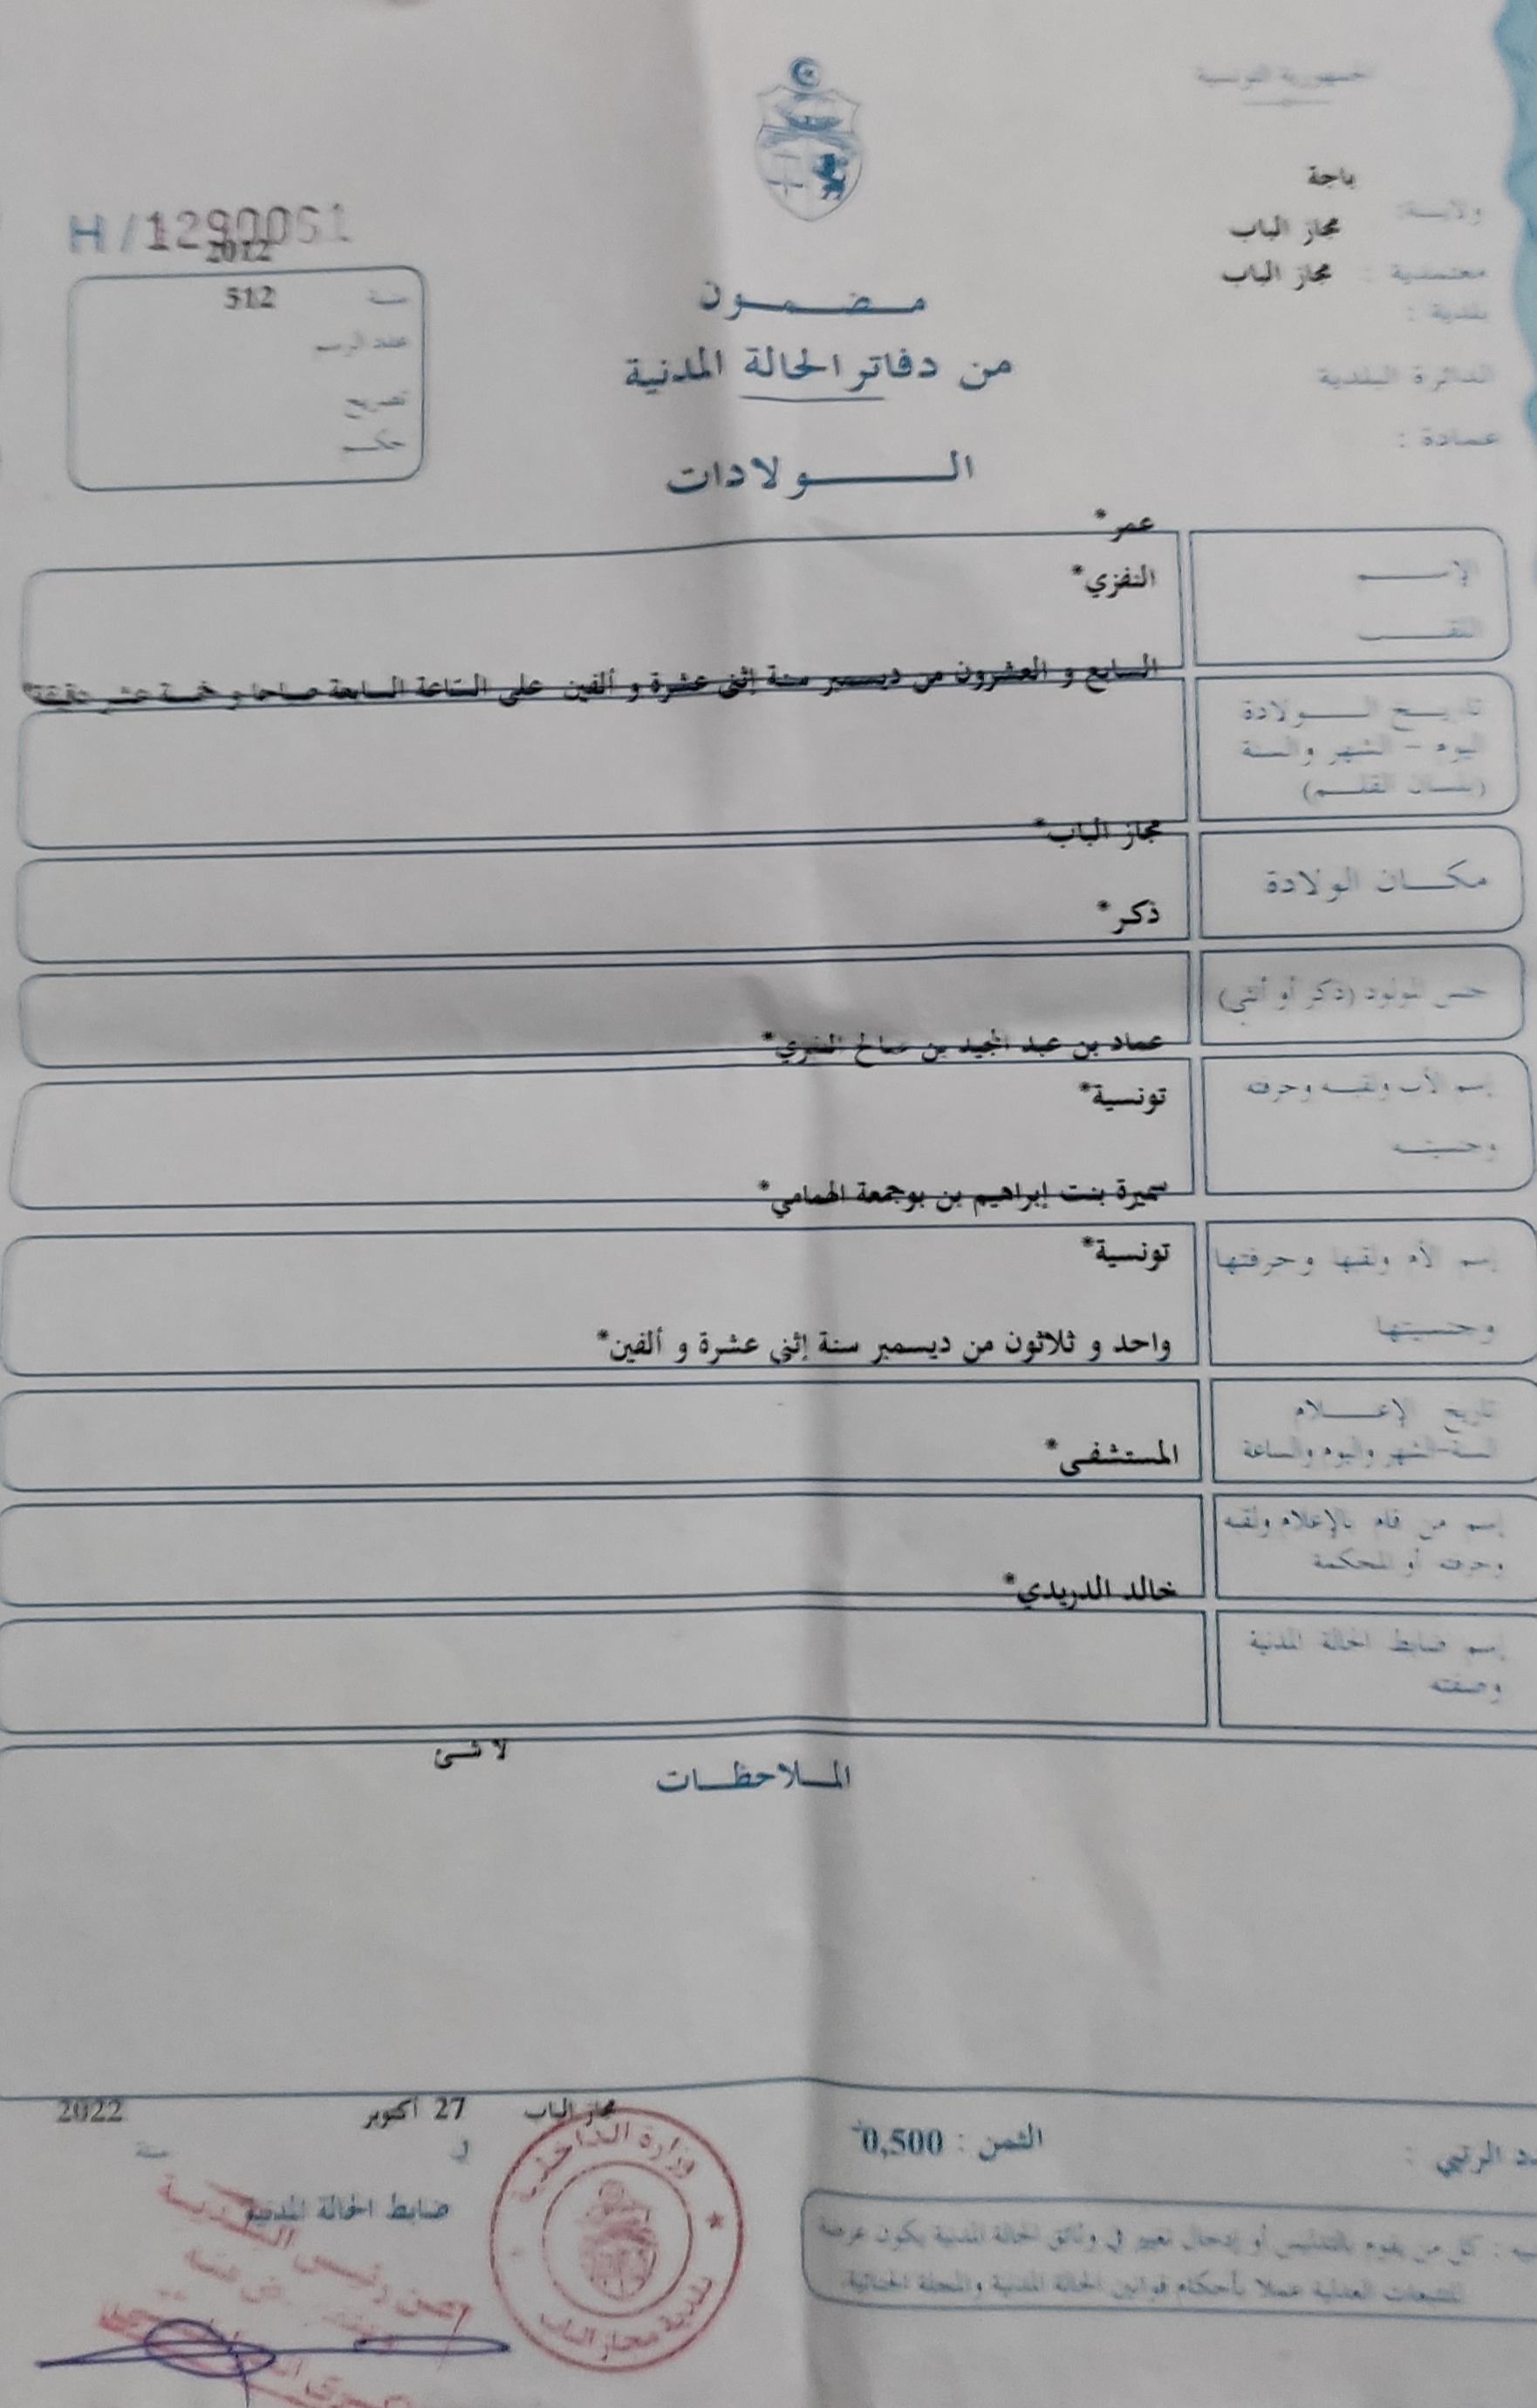 الجمهورية التونسية
باجة
ولاية:
مجاز الباب
معتمدية : مجاز الباب
بلدية :
الدائرة البلدية
عمادة :
H/1290051
2012
سنة 512
عدد الرسم
تصريح
حكم
مضمون
من دفاتر الحالة المدنية
الولادات
عمر*
الإسم
النفزي*
اللقب
السابع و العشرون من ديسمبر سنة إثني عشرة و ألفين على الساعة السابعة صباحا و خمسة عشر دقيقة*
تاريخ الولادة
اليوم - الشهر والسنة
(بلسان القلم)
مجاز الباب*
مكان الولادة
ذكر*
جنس المولود (ذكر أو أنثى)
عماد بن عبد المجيد بن صالح النفزي*
إسم الأب ولقبه وحرفته
تونسية*
وجنسيته
سميرة بنت إبراهيم بن بوجمعة الهمامي*
إسم الأم ولقبها وحرفتها
تونسية*
وجنسيتها
واحد و ثلاثون من ديسمبر سنة إثني عشرة و ألفين*
تاريخ الإعلام
السنة-الشهر واليوم والساعة
المستشفى*
إسم من قام بالإعلام ولقبه
وحرفته أو المحكمة
خالد الدريدي*
إسم ضابط الحالة المدنية
وصفته
لا شئ
الملاحظات
مجاز الباب 27 أكتوبر 2022
في سنة
ضابط الحالة المدنية
وزارة الداخلية
بلدية مجاز الباب
عن رئيس البلدية
الثمن : 0,500
د الرتبي :
يه : كل من يقوم بالتدليس أو إدخال تغيير في وثائق الحالة المدنية يكون عرضة
للتتبعات العدلية عملا بأحكام قوانين الحالة المدنية والمجلة الجنائية